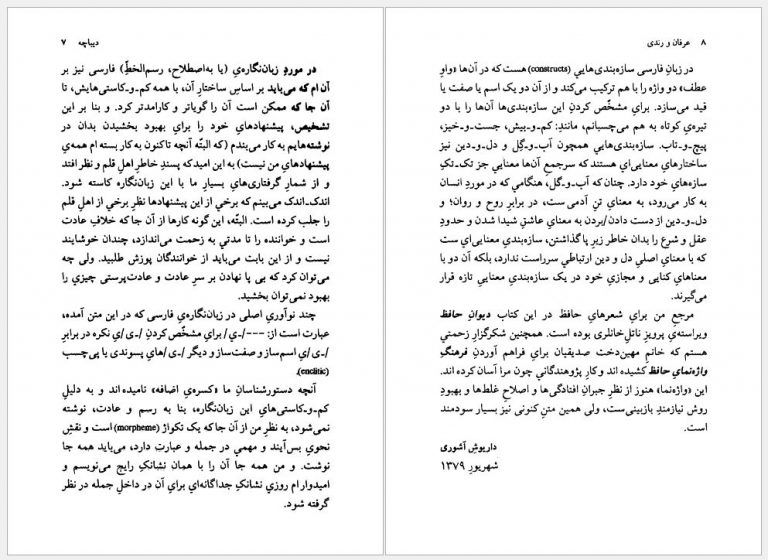 دیباچه ۷
در موردِ زبان‌نگاره‌يِ (یا به‌اصطلاح، رسم‌الخطِّ) فارسی نیز بر
آن ام که می‌باید بر اساسِ ساختارِ آن، با همه کم‌ـ‌و‌ـ‌کاستی‌هایش، تا
آن جا که ممکن است آن را گویاتر و کارامدتر کرد. و بنا بر این
تشخیص، پیشنهادهايِ خود را برايِ بهبود بخشیدن بدان در
نوشته‌هایم به کار می‌بندم (که البتّه آنچه تاکنون به کار بسته ام همه‌يِ
پیشنهادهايِ من نیست) به این امید که پسندِ خاطرِ اهلِ قلم و نظر افتد
و از شمارِ گرفتاری‌هايِ بسیارِ ما با این زبان‌نگاره کاسته شود.
اندک‌ـ‌اندک می‌بینم که برخي از این پیشنهادها نظرِ برخي از اهلِ قلم
را جلب کرده است. البتّه، این گونه کارها از آن جا که خلافِ عادت
است و خواننده را تا مدتي به زحمت می‌اندازد، چندان خوشایند
نیست و از این بابت می‌باید از خوانندگان پوزش طلبید. ولی چه
می‌توان کرد که بی پا نهادن بر سرِ عادت و عادت‌پرستی چیزي را
بهبود نمی‌توان بخشید.
چند نوآوریِ اصلی در زبان‌نگاره‌يِ فارسی که در این متن آمده،
عبارت است از: ---ـي/ برايِ مشخّص‌کردنِ /ـی/ يِ نکره در برابرِ
/ـی/ يِ اسم‌ساز و صفت‌ساز و دیگر /ـی/هايِ پسوندی یا پی‌چسب
(enclitic).
آنچه دستورشناسانِ ما «کسره‌يِ اضافه» نامیده اند و به دلیلِ
کم‌ـ‌و‌ـ‌کاستی‌هايِ این زبان‌نگاره، بنا به رسم و عادت، نوشته
نمی‌شود، به نظرِ من از آن جا که یک تکواژ (morpheme) است و نقشِ
نحويِ بس‌آیند و مهمي در جمله و عبارت دارد، می‌باید همه جا
نوشت. و من همه جا آن را با همان نشانکِ رایج می‌نویسم و
امیدوار ام روزي نشانکِ جداگانه‌اي برايِ آن در داخلِ جمله در نظر
گرفته شود.
۸ عرفان و رندی
در زبانِ فارسی سازه‌بندی‌هایي (constructs) هست که در آن‌ها «واوِ
عطف» دو واژه را با هم ترکیب می‌کند و از آن دو یک اسم یا صفت یا
قید می‌سازد. برايِ مشخّص کردنِ این سازه‌بندی‌ها آن‌ها را با دو
تیره‌يِ کوتاه به هم می‌چسبانم، مانند: کم‌ـ‌و‌ـ‌بیش، جست‌ـ‌و‌ـ‌خیز،
پیچ‌ـ‌و‌ـ‌تاب. سازه‌بندی‌هایي همچون آب‌ـ‌و‌ـ‌گِل و دل‌ـ‌و‌ـ‌دین نیز
ساختارهايِ معنایی‌اي هستند که سرجمعِ آن‌ها معنایي جز تک‌ـ‌تکِ
سازه‌هايِ خود دارد. چنان که آب‌ـ‌و‌ـ‌گل، هنگامي که در موردِ انسان
به کار می‌رود، به معنايِ تنِ آدمی ست، در برابرِ روح و روان؛ و
دل‌ـ‌و‌ـ‌دین از دست دادن/بردن به معنايِ عاشق شیدا شدن و حدودِ
عقل و شرع را بدان خاطر زیرِ پا گذاشتن، سازه‌بندیِ معنایی‌اي ست
که با معنايِ اصلیِ دل و دین ارتباطي سرراست ندارد، بلکه آن دو با
معناهايِ کنایی و مجازیِ خود در یک سازه‌بندیِ معنایيِ تازه قرار
می‌گیرند.
مرجعِ من برايِ شعرهايِ حافظ در این کتاب دیوانِ حافظ
ویراسته‌يِ پرویزِ ناتلِ‌خانلری بوده است. همچنین شکرگزارِ زحمتي
هستم که خانمِ مهین‌دختِ صدیقیان برايِ فراهم آوردنِ فرهنگِ
واژه‌نمايِ حافظ کشیده اند و کارِ پژوهندگاني چون مرا آسان کرده اند.
این «واژه‌نما» هنوز از نظرِ جبرانِ افتادگی‌ها و اصلاحِ غلط‌ها و بهبودِ
روش نیازمندِ بازبینی‌ست، ولی همین متنِ کنونی نیز بسیار سودمند
است.
داریوشِ آشوری
شهریورِ ۱۳۷۹